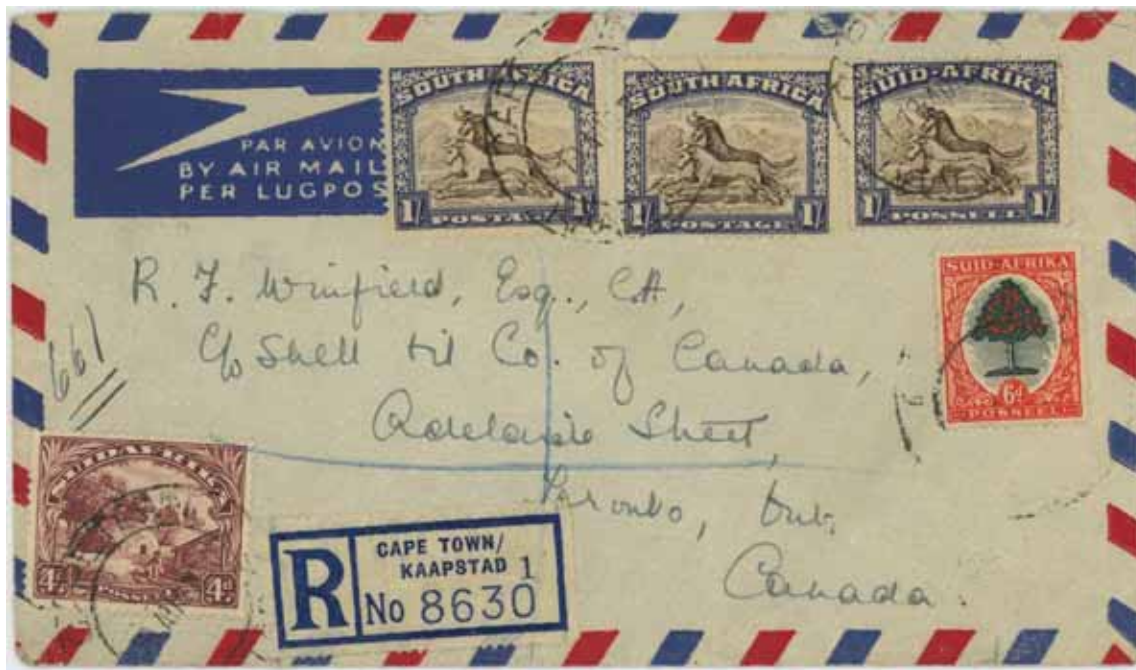 PAR AVION
BY AIR MAIL
PER LUGPOS
SOUTH AFRICA
1/- POSTAGE 1/-
SOUTH AFRICA
1/- POSTAGE 1/-
SUID-AFRIKA
1/- POSSEEL 1/-
SUID-AFRIKA
6d
POSSEEL
R. F. Winfield, Esq., CA,
c/o Shell Oil Co. of Canada,
Adelaide Street,
Toronto, Ont.
Canada.
661
SUIDAFRIKA
4d POSSEEL 4d
R
CAPE TOWN/
KAAPSTAD 1
No 8630